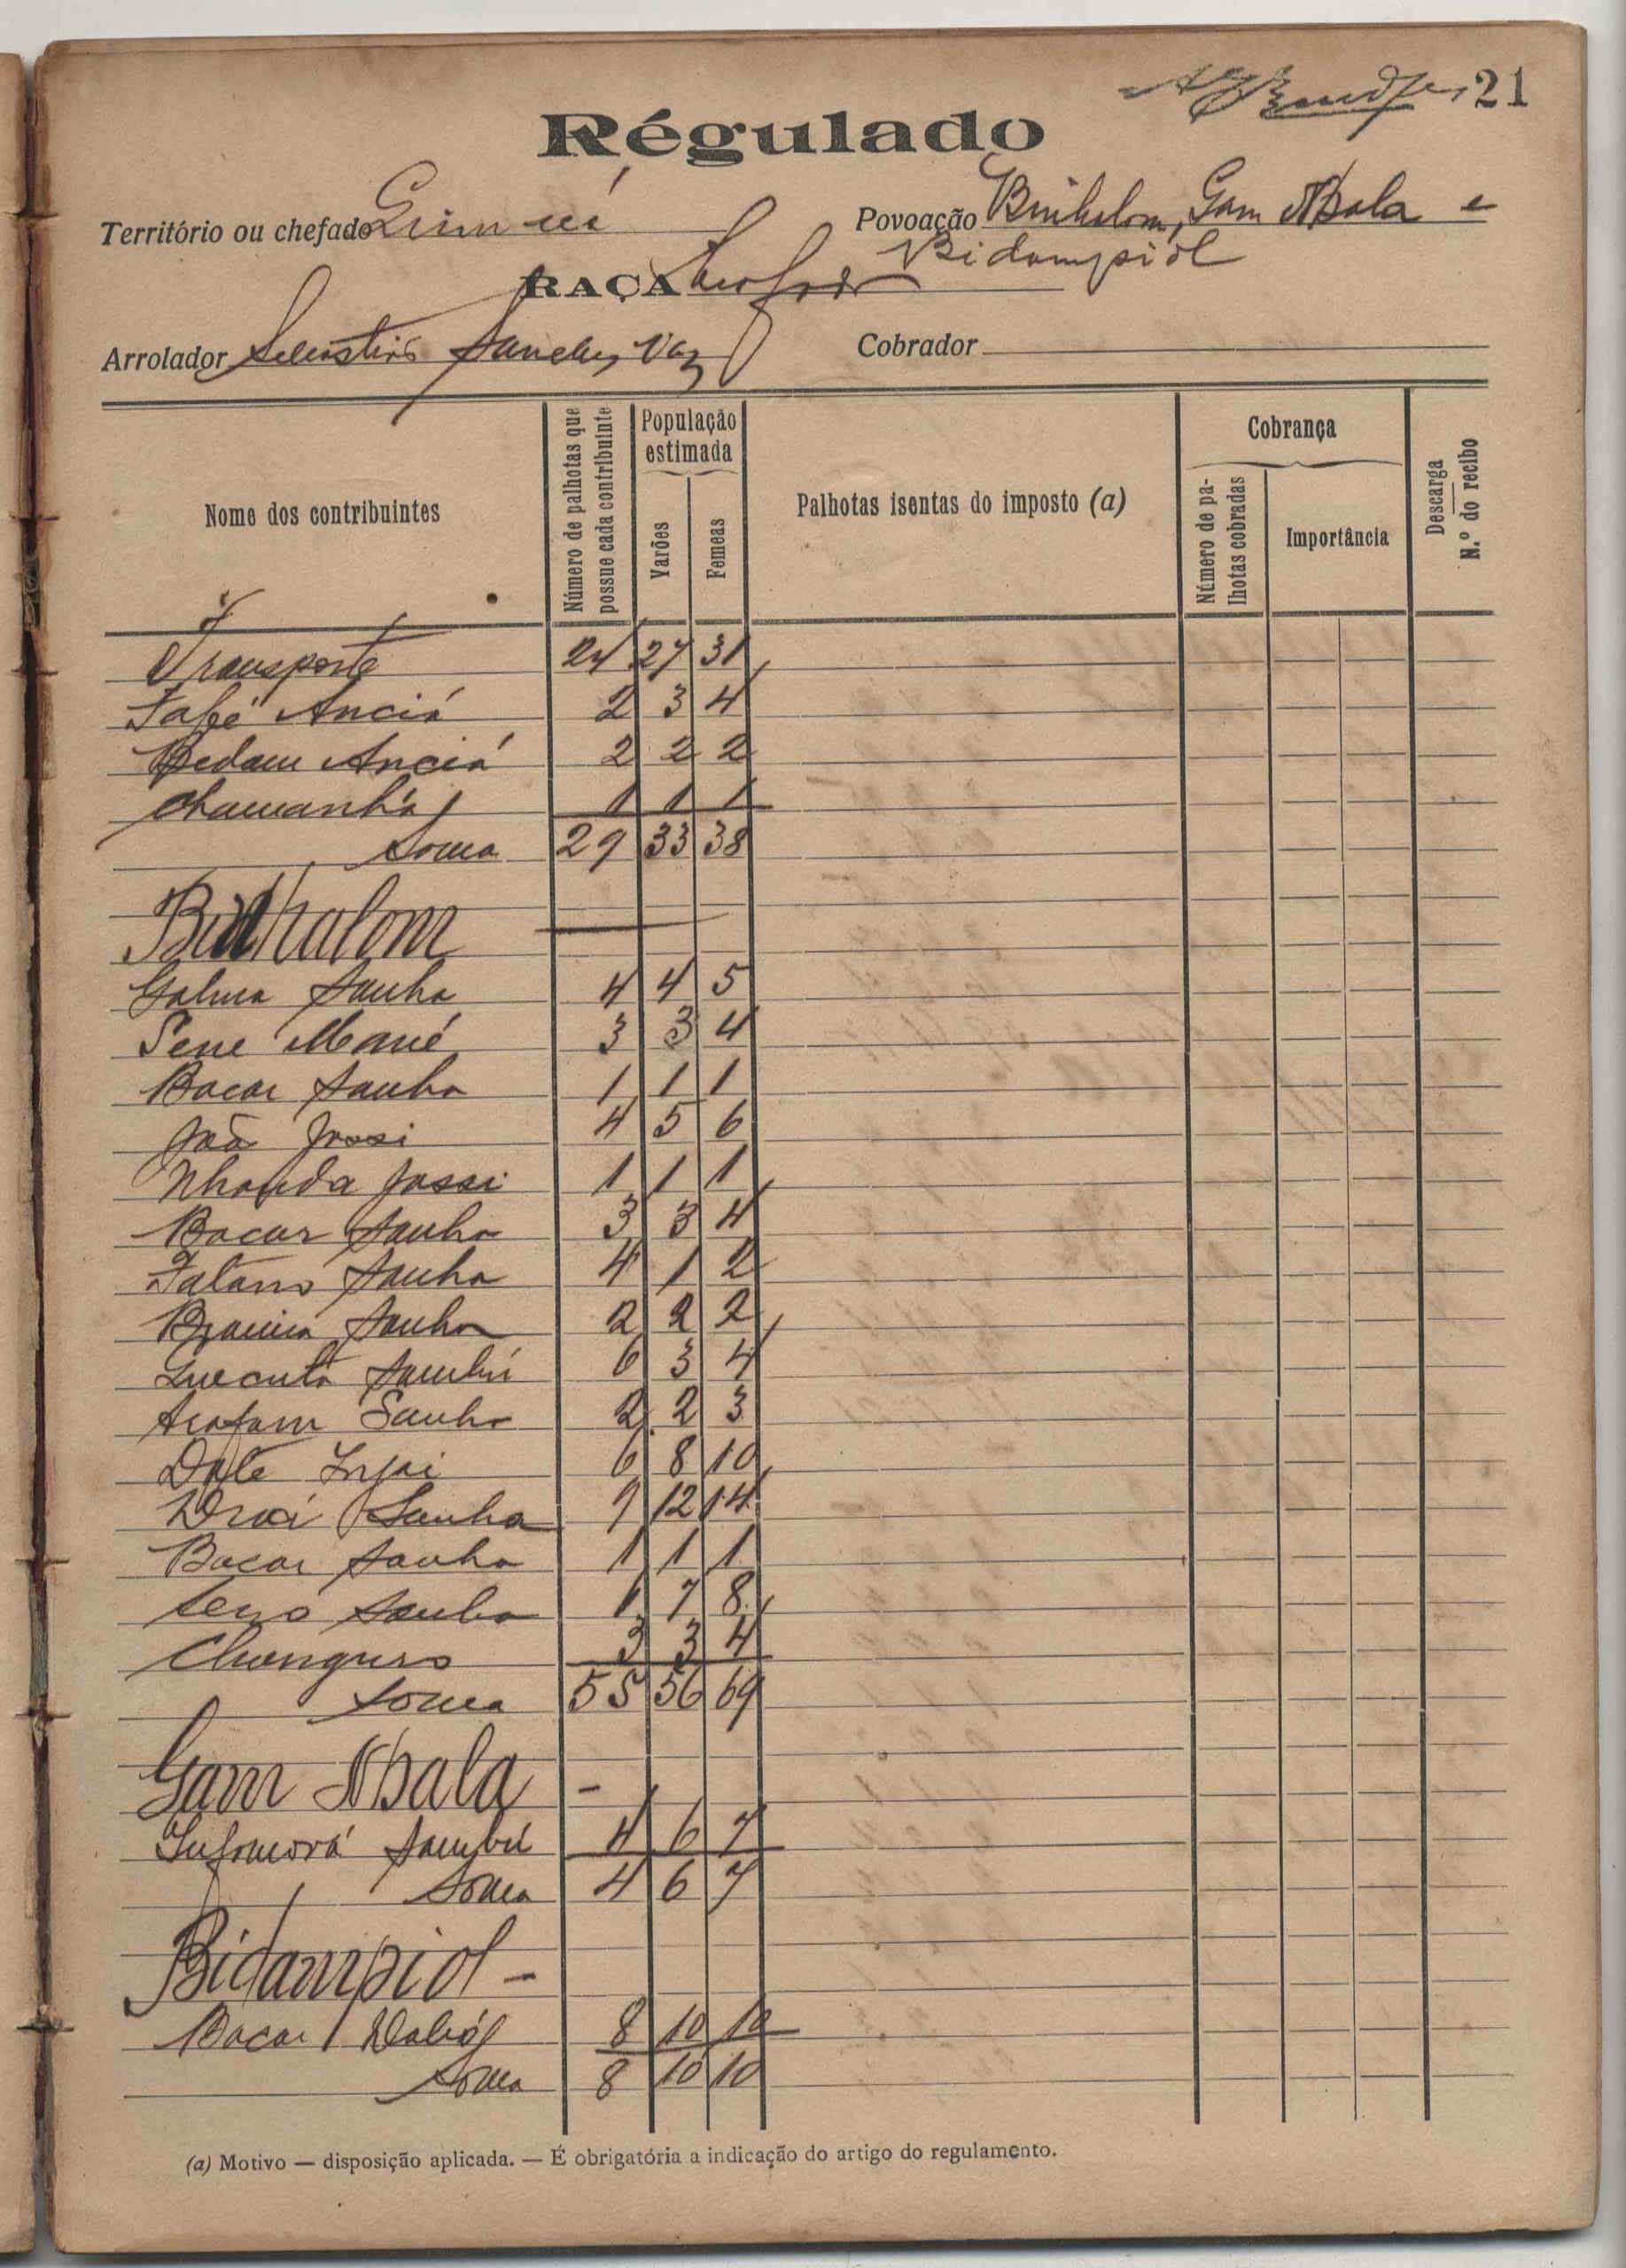 21
Régulado
Território ou chefado
Povoação Binhalom, Gam Nbala e
Bidampiol
RAÇA
Arrolador Sebastião Sanches Vaz
Cobrador
Nome dos contribuintes
Número de palhotas que possue cada contribuinte
População estimada
Varões
Femeas
Palhotas isentas do imposto (a)
Cobrança
Número de palhotas cobradas
Importância
Descarga
N.º do recibo
Transporte 24 27 31
Anciá 2 3 4
Bedam Anciá 2 2 2
Chamanhá 1 1 1
Soma 29 33 38
Binhalom
Galma Sanha 4 4 5
Sene Mané 3 3 4
Bacar Sanha 1 1 1
João Jassi 4 5 6
Jassi 1 1 1
Bacar Sanha 3 3 4
Sanha 4 1 2
Sanha 2 2 2
Quecuta Sambú 6 3 4
Arafam Sanha 2 2 3
6 8 10
Sanha 9 12 14
Bacar Sanha 1 1 1
Sanha 1 7 8
3 3 4
Soma 55 56 69
Gam Nbala -
Sambú 4 6 7
Soma 4 6 7
Bidampiol -
Bacar 8 10 10
Soma 8 10 10
(a) Motivo — disposição aplicada. — É obrigatória a indicação do artigo do regulamento.